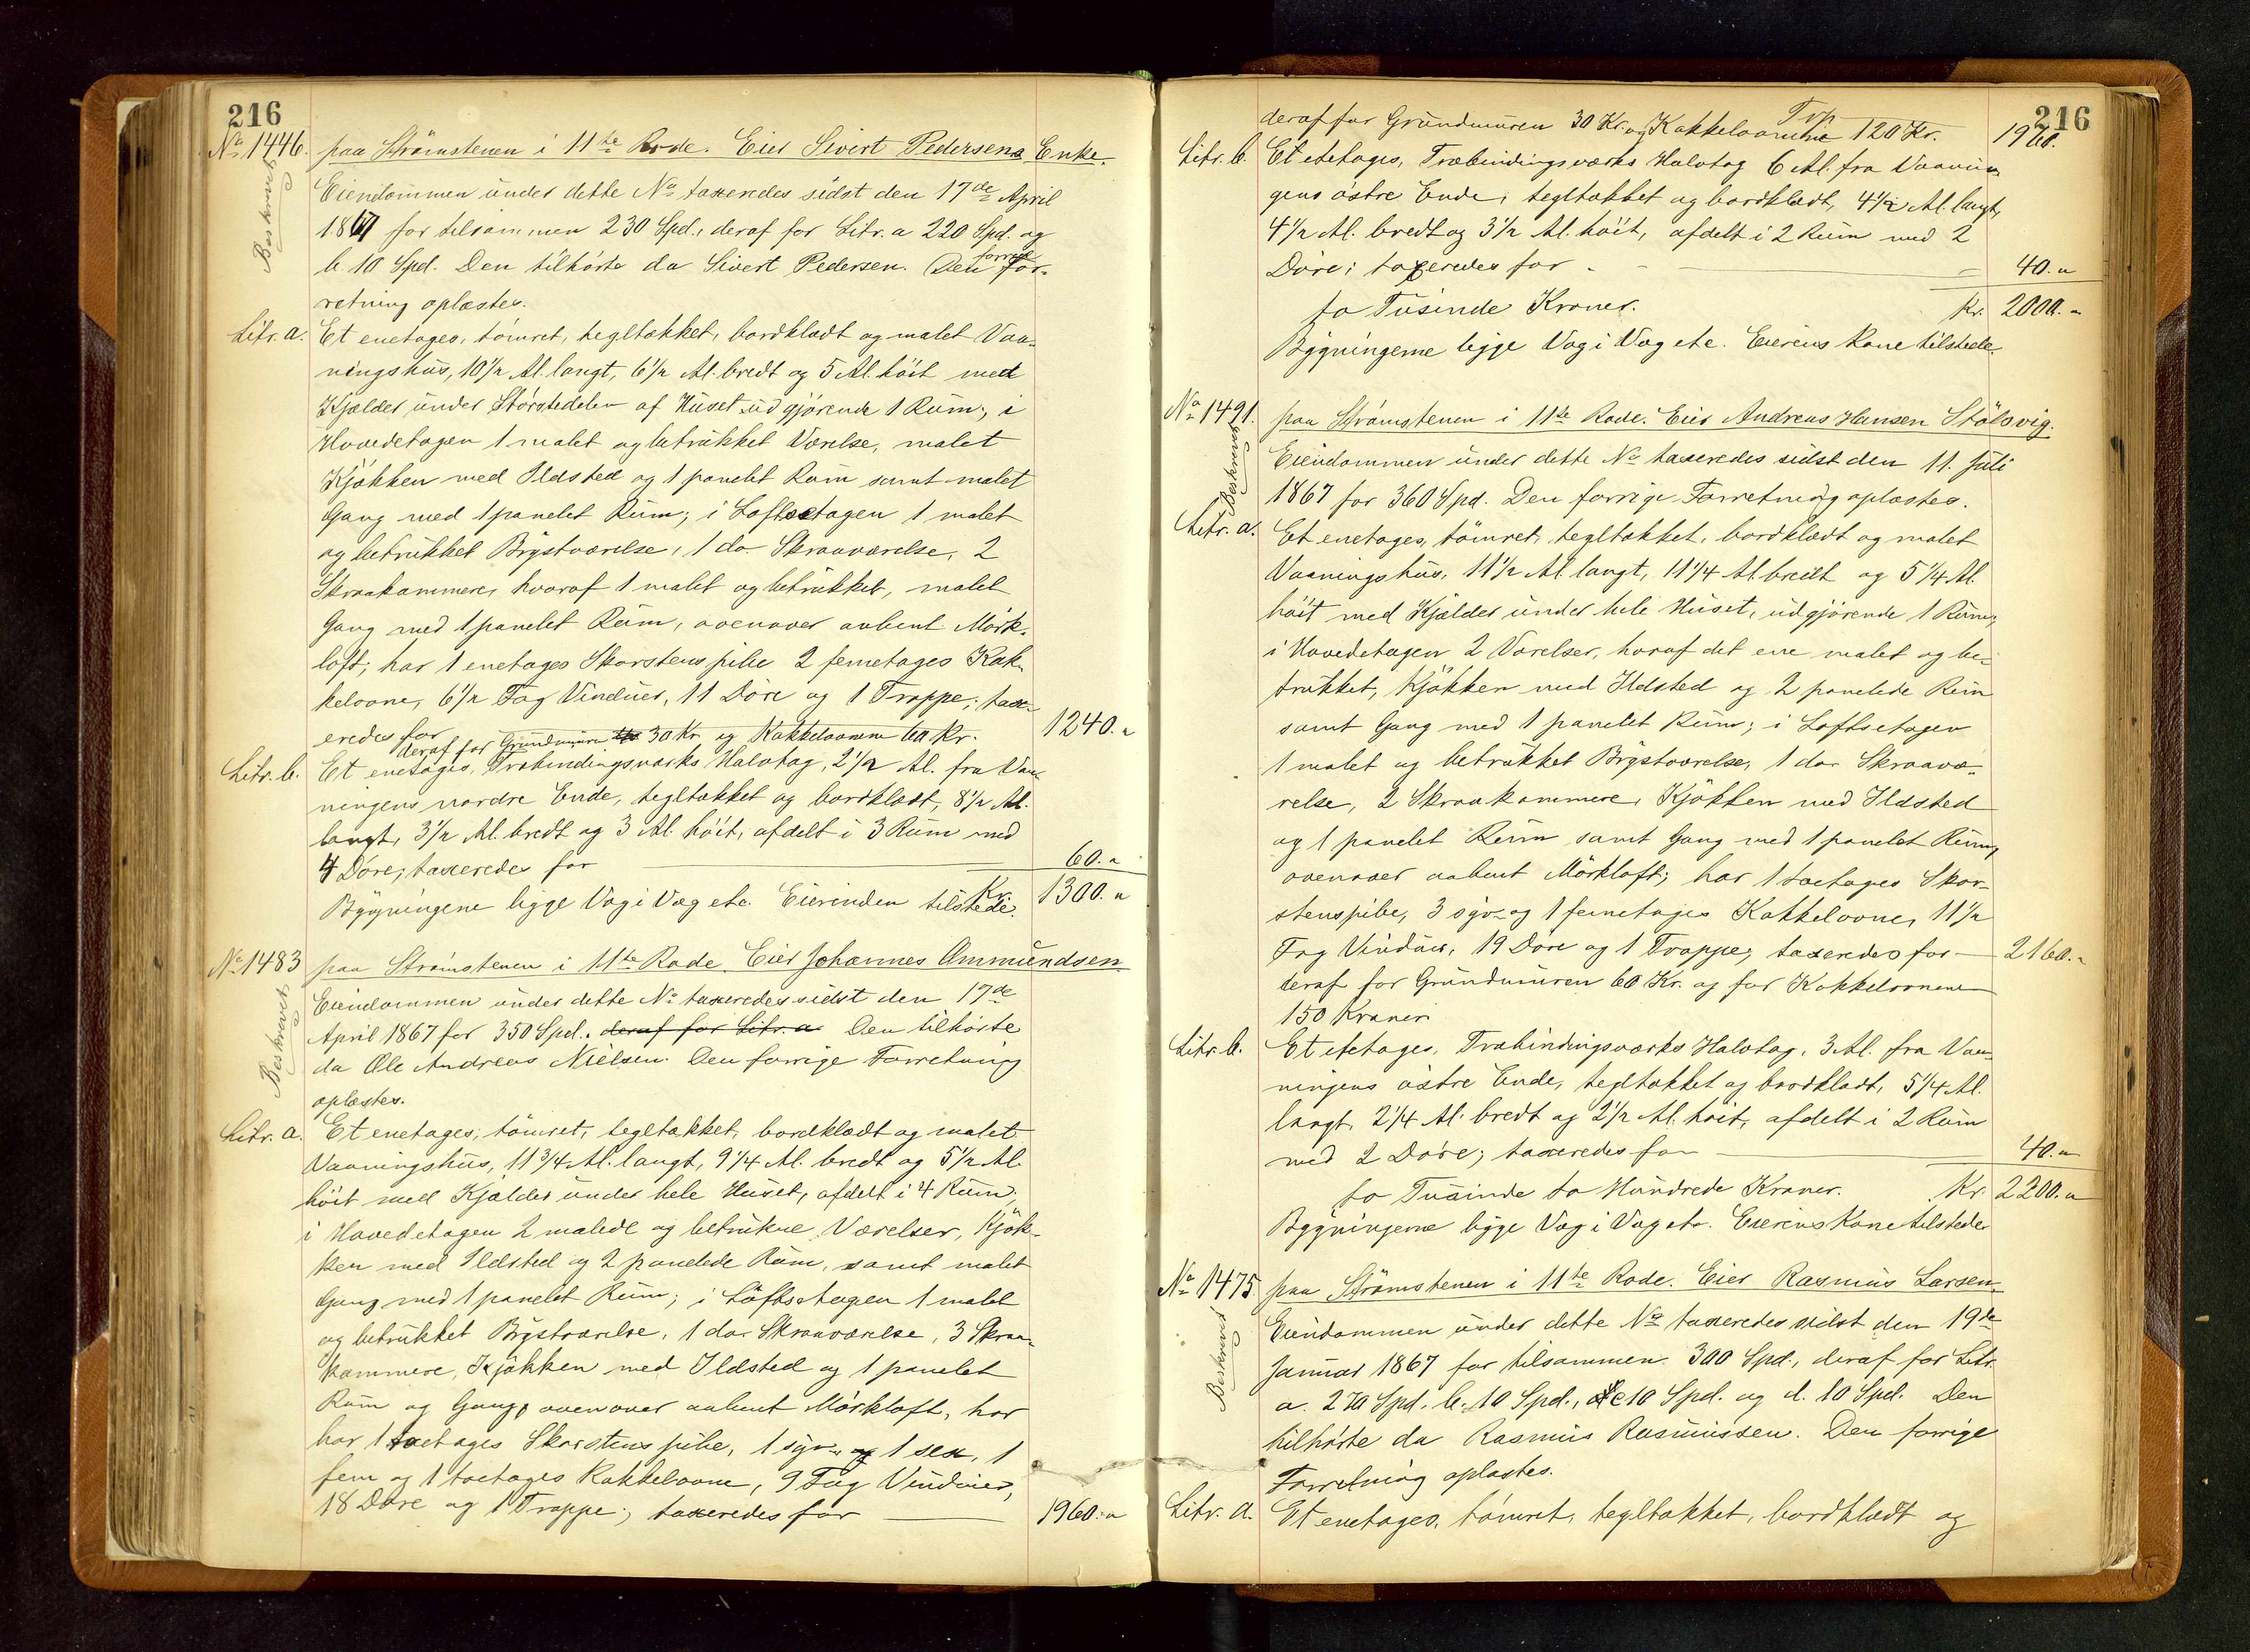 216
No 1446. paa Strömstenen i 11te Rode. Eier Sivert Pedersens Enke.
Beskrevet
Eiendommen under dette No taxeredes sidst den 17de April
1867 for tilsammen 230 Spd., deraf for Litr. a 220 Spd. og
b. 10 Spd. Den tilhörte da Sivert Pedersen. Den forrige For-
retning oplæstes.
Litr. a. Et enetages, tömret, tegltækket, bordklædt og malet Vaa-
ningshus, 10 1/2 Al. langt, 6 1/2 Al. bredt og 5 Al. höit med
Kjælder under Störstedelen af Huset udgjörende 1 Rum; i
Hovedetagen 1 malet og betrükket Værelse, malet
Kjökken med Ildsted og 1 panelet Rum samt malet
Gang med 1 panelet Rum; i Loftsetagen 1 malet
og betrükket Brÿstværelse, 1 do Skraaværelse, 2
Skraakammere, hvoraf 1 malet og betrükket, malet
Gang med 1 panelet Rum, ovenover aabent Mörk-
loft; har 1 enetages Skorstenspibe 2 femetages Kak-
kelovne, 6 1/2 Fag Vinduer, 11 Döre og 1 Trappe; tax-
eredes for 1240.„
deraf for Grundmuren 30 Kr. og Kakkelovnene 60 Kr.
Litr. b. Et enetages, Træbindingsværks Halvtag, 2 1/2 Al. fra Vaa-
ningens nordre Ende, tegltækket og bordklædt, 8 1/2 Al.
langt, 3 1/2 Al. bredt og 3 Al. höit, afdelt i 3 Rum med
4 Döre; taxeredes for 60.„
Kr. 1300.„
Bÿgningene ligge Væg i Væg etc. Eierinden tilstede.
No 1483 paa Strömstenen i 11te Rode. Eier Johannes Ommundsen.
Beskrevet
Eiendommen under dette No taxeredes sidst den 17de
April 1867 for 350 Spd. deraf for Litr. a Den tilhörte
da Ole Andreas Nielsen. Den forrige Forretning
oplæstes.
Litr. a. Et enetages, tömret, tegltækket, bordklædt og malet
Vaaningshus, 11 3/4 Al. langt, 9 1/4 Al. bredt og 5 1/2 Al.
höit med Kjælder under hele Huset, afdelt i 4 Rum;
i Hovedetagen 2 malede og betrukne Værelser, Kjök-
ken med Ildsted og 2 panelede Rum, samt malet
Gang med 1 panelet Rum; i Loftsetagen 1 malet
og betrükket Brÿstværelse, 1 do Skraaværelse, 3 Skraa-
kammere, Kjökken med Ildsted og 1 panelet
Rum og Gang, ovenover aabent Mörkloft, har
har 1 toetages Skorstenspibe, 1 syv- og 1 sex, 1
fem og 1 toetages Kakkelovne, 9 Fag Vinduer,
18 Döre og 1 Trappe; taxeredes for 1960.„
216
Trp
deraf for Grundmuren 30 Kr. og Kakkelovnene 120 Kr. 1960.
Litr. b. Et etetages, Træbindingsværks Halvtag 6 Al. fra Vaanin-
gens östre Ende, tegltækket og bordklædt, 4 1/2 Al. langt,
4 1/2 Al. bredt og 3 1/2 Al. höit, afdelt i 2 Rum med 2
Döre; taxeredes for 40.„
to Tusinde Kroner. Kr. 2000.„
Bÿgningerne ligge Væg i Væg etc. Eierens Kone tilstede.
No 1491. paa Strömstenen i 11te Rode. Eier Andreas Hansen Stölsvig.
Beskrevet
Eiendommen under dette No taxeredes sidst den 11. Juli
1867 for 360 Spd. Den forrige Forretning oplæstes.
Litr. a. Et enetages, tömret, tegltækket, bordklædt og malet
Vaaningshus, 11 1/2 Al. langt, 11 1/4 Al. bredt og 5 1/4 Al.
höit med Kjælder under hele Huset, udgjörende 1 Rum,
i Hovedetagen 2 Værelser, hvoraf det ene malet og be-
trükket, Kjökken med Ildsted og 2 panelede Rum
samt Gang med 1 panelet Rum; i Loftsetagen
1 malet og betrükket Brÿstværelse, 1 do Skraavæ-
relse, 2 Skraakammere, Kjökken med Ildsted
og 1 panelet Rum samt Gang med 1 panelet Rum,
ovenover aabent Mörkloft; har 1 toetages Skor-
stenspibe, 3 syv- og 1 femetages Kakkelovne, 11 1/2
Fag Vinduer, 19 Döre og 1 Trappe; taxeredes for 2160.„
deraf for Grundmuren 60 Kr. og for Kakkelovnene
150 Kroner.
Litr. b. Et etetages, Træbindingsværks Halvtag, 3 Al. fra Vaa-
ningens östre Ende, tegltækket og bordklædt, 5 1/4 Al.
langt, 2 1/4 Al. bredt og 2 1/2 Al. höit, afdelt i 2 Rum
med 2 Döre; taxeredes for 40.„
to Tusinde to Hundrede Kroner. Kr. 2200.„
Bÿgningerne ligge Væg i Væg etc. Eierens Kone tilstede
No 1475 paa Strömstenen i 11te Rode. Eier Rasmus Larsen.
Beskrevet
Eiendommen under dette No taxeredes sidst den 19de
Januar 1867 for tilsammen 300 Spd., deraf for Litr.
a. 270 Spd. b. 10 Spd., c 10 Spd. og d. 10 Spd. Den
tilhörte da Rasmus Rasmussen. Den forrige
Forretning oplæstes.
Litr. a. Et enetages, tömret, tegltækket, bordklædt og